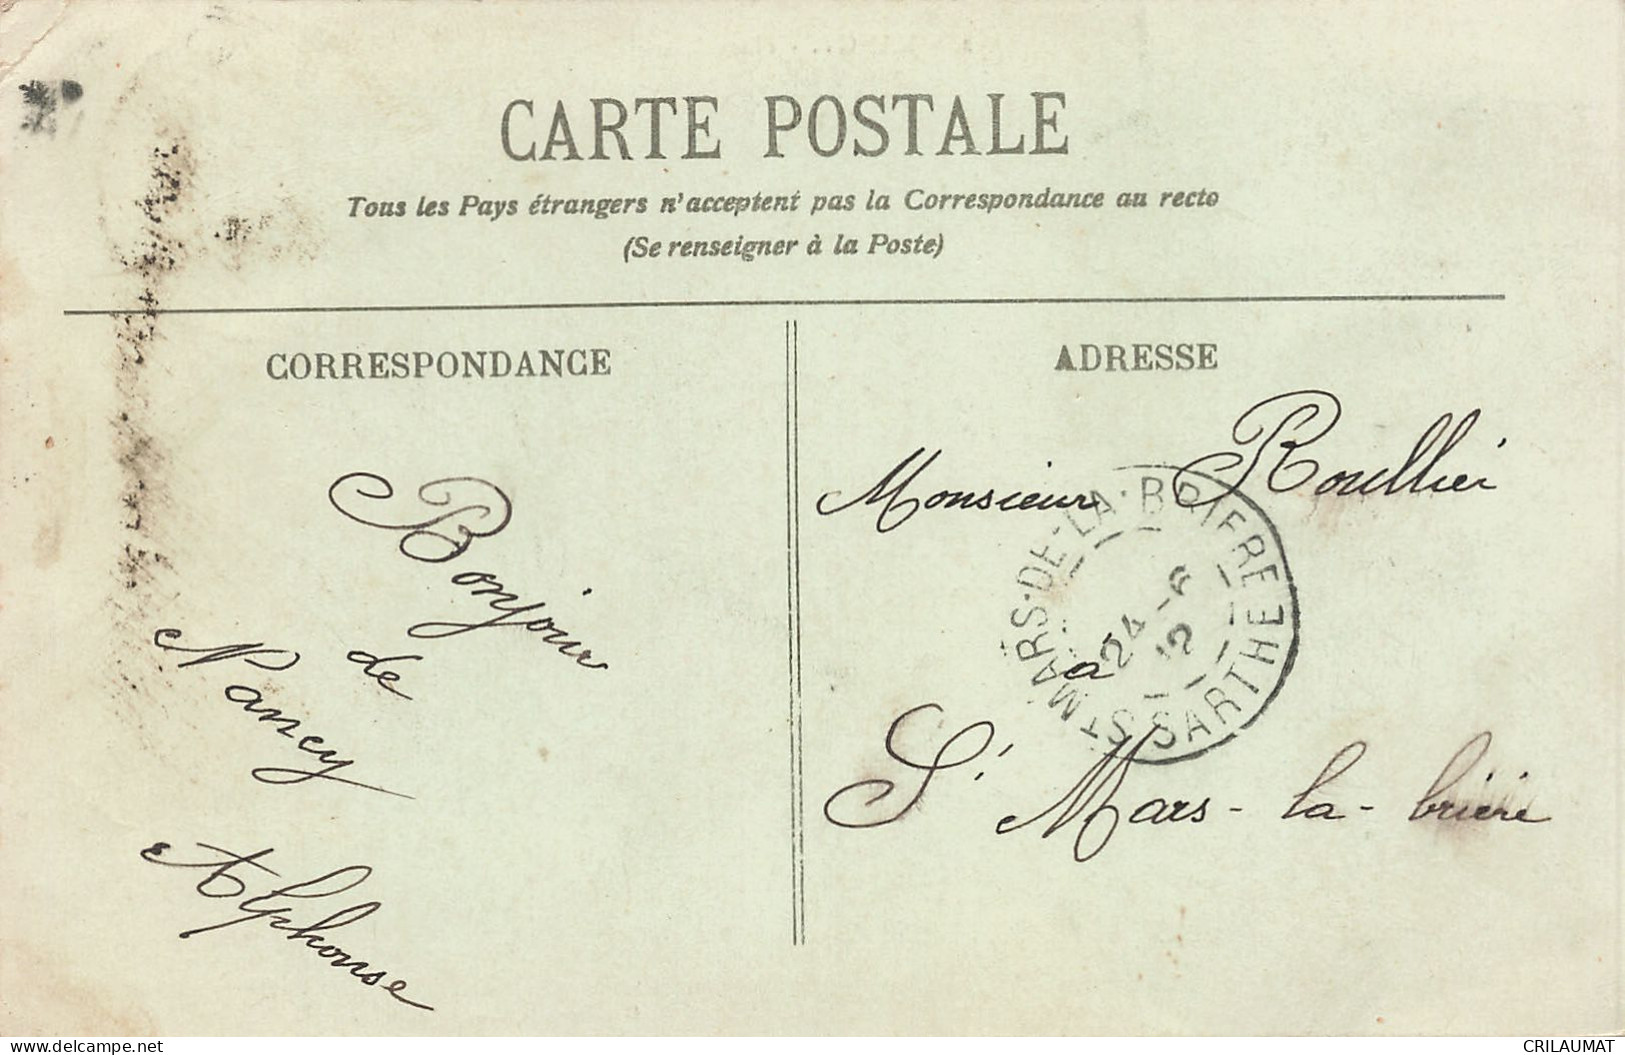 CARTE POSTALE
Tous les Pays étrangers n'acceptent pas la Correspondance au recto
(Se renseigner à la Poste)
CORRESPONDANCE
Bonjour
de
Nancy
Alphonse
ADRESSE
Monsieur Roullier
à
St Mars-la-brière
ST MARS-DE-LA-BRIERE
24-6
12
SARTHE
delcampe.net
CRILAUMAT